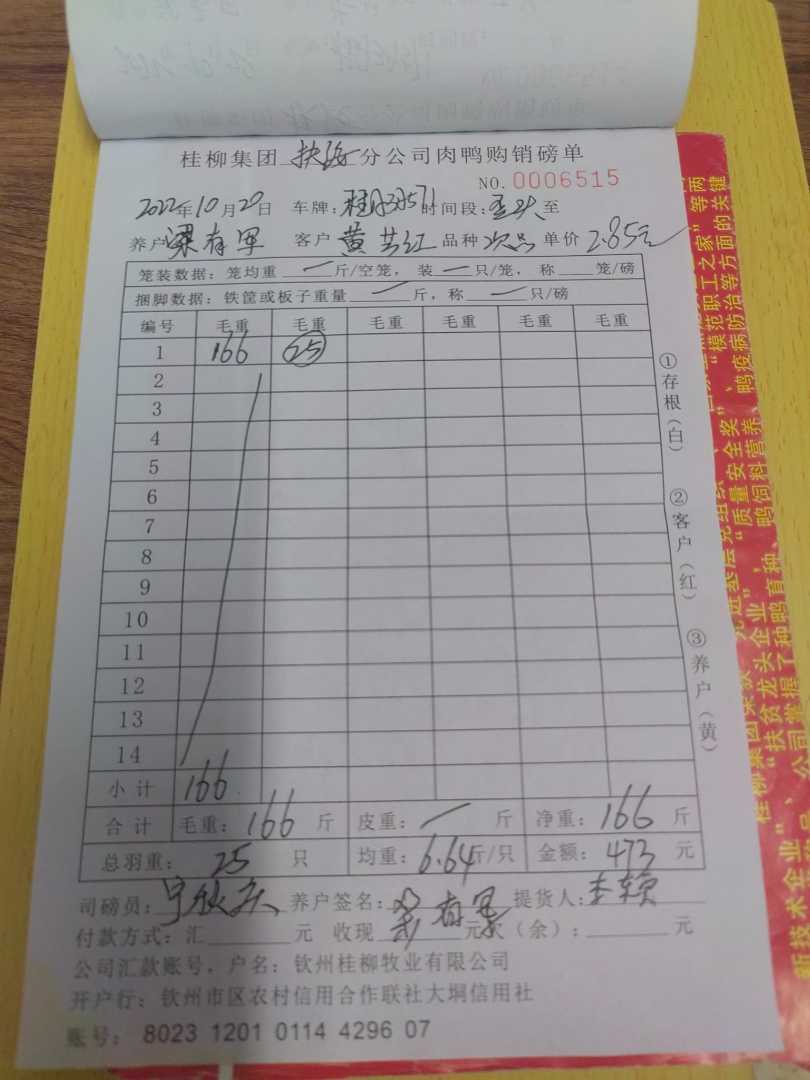 桂柳集团 扶海 分公司肉鸭购销磅单
NO. 0006515
2022年10月20日 车牌: 时间段: 至
养户 梁有军 客户 黄艺红 品种 次品 单价 2.85元
笼装数据: 笼均重 一 斤/空笼, 装 一 只/笼, 称 笼/磅
捆脚数据: 铁筐或板子重量 一 斤, 称 一 只/磅
编号 毛重 毛重 毛重 毛重 毛重 毛重
1 166 25
2
3
4
5
6
7
8
9
10
11
12
13
14
小计 166
合计 毛重: 166 斤 皮重: 一 斤 净重: 166 斤
总羽重: 25 只 均重: 6.64斤/只 金额: 473 元
司磅员: 养户签名: 梁有军 提货人:
付款方式: 汇 元 收现 元 欠(余): 元
公司汇款账号, 户名: 钦州桂柳牧业有限公司
开户行: 钦州市区农村信用合作联社大垌信用社
账号: 8023 1201 0114 4296 07
①存根(白)
②客户(红)
③养户(黄)
“模范职工之家”等两
“质量安全奖”
鸭疫病防治等方面的关键
“扶贫龙头企业”、
公司掌握了种鸭直种、鸭饲料营养、
新技术企业”、